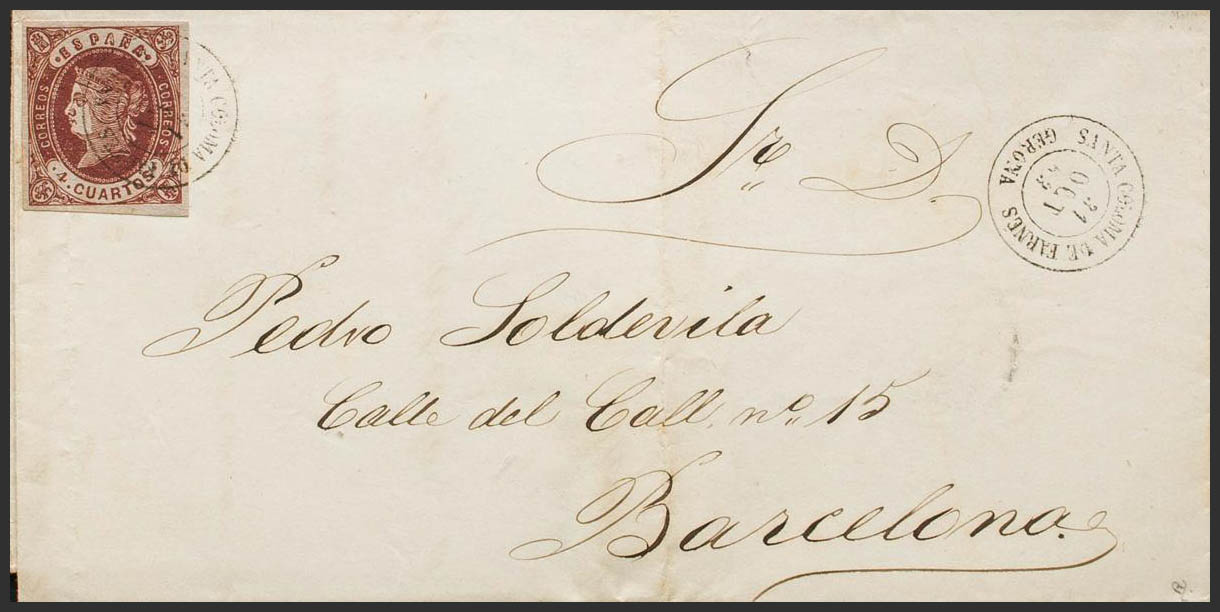 ESPAÑA
CORREOS
CORREOS
4. CUARTOS
Sr. D.
SANTA COLOMA DE FARNÉS
GERONA
21
OCT
63
Pedro Soldevila
Calle del Call, nº 15
Barcelona.